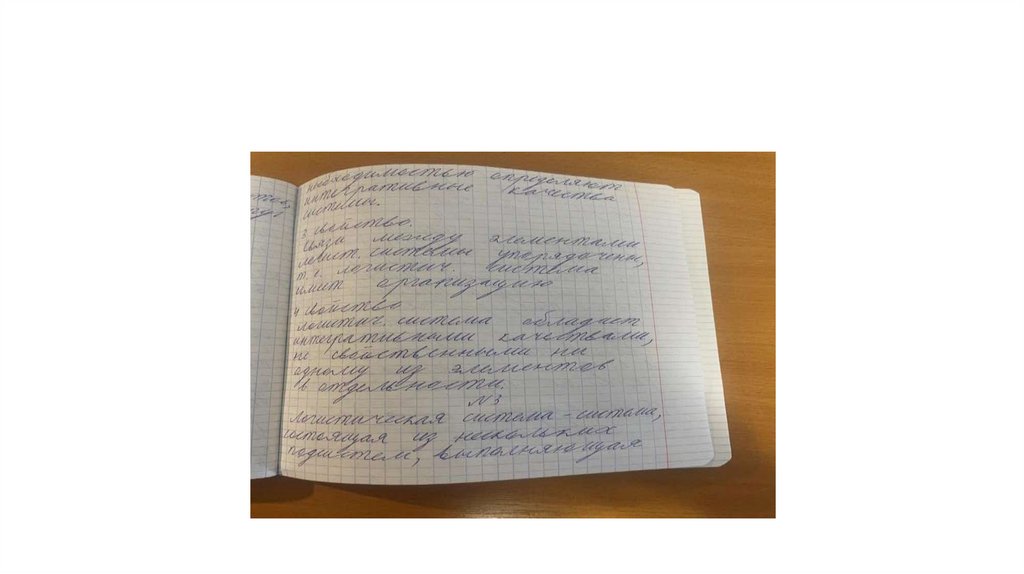 необходимостью определяют
интегративные качества
системы.
3 свойство.
Связи между элементами
логист. системы упорядочены,
т. е. логистич. система
имеет организацию
4 свойство
Логистич. система обладает
интегративными качествами,
не свойственными ни
одному из элементов
в отдельности.
N3
Логистическая система - система,
состоящая из нескольких
подсистем, выполняющая